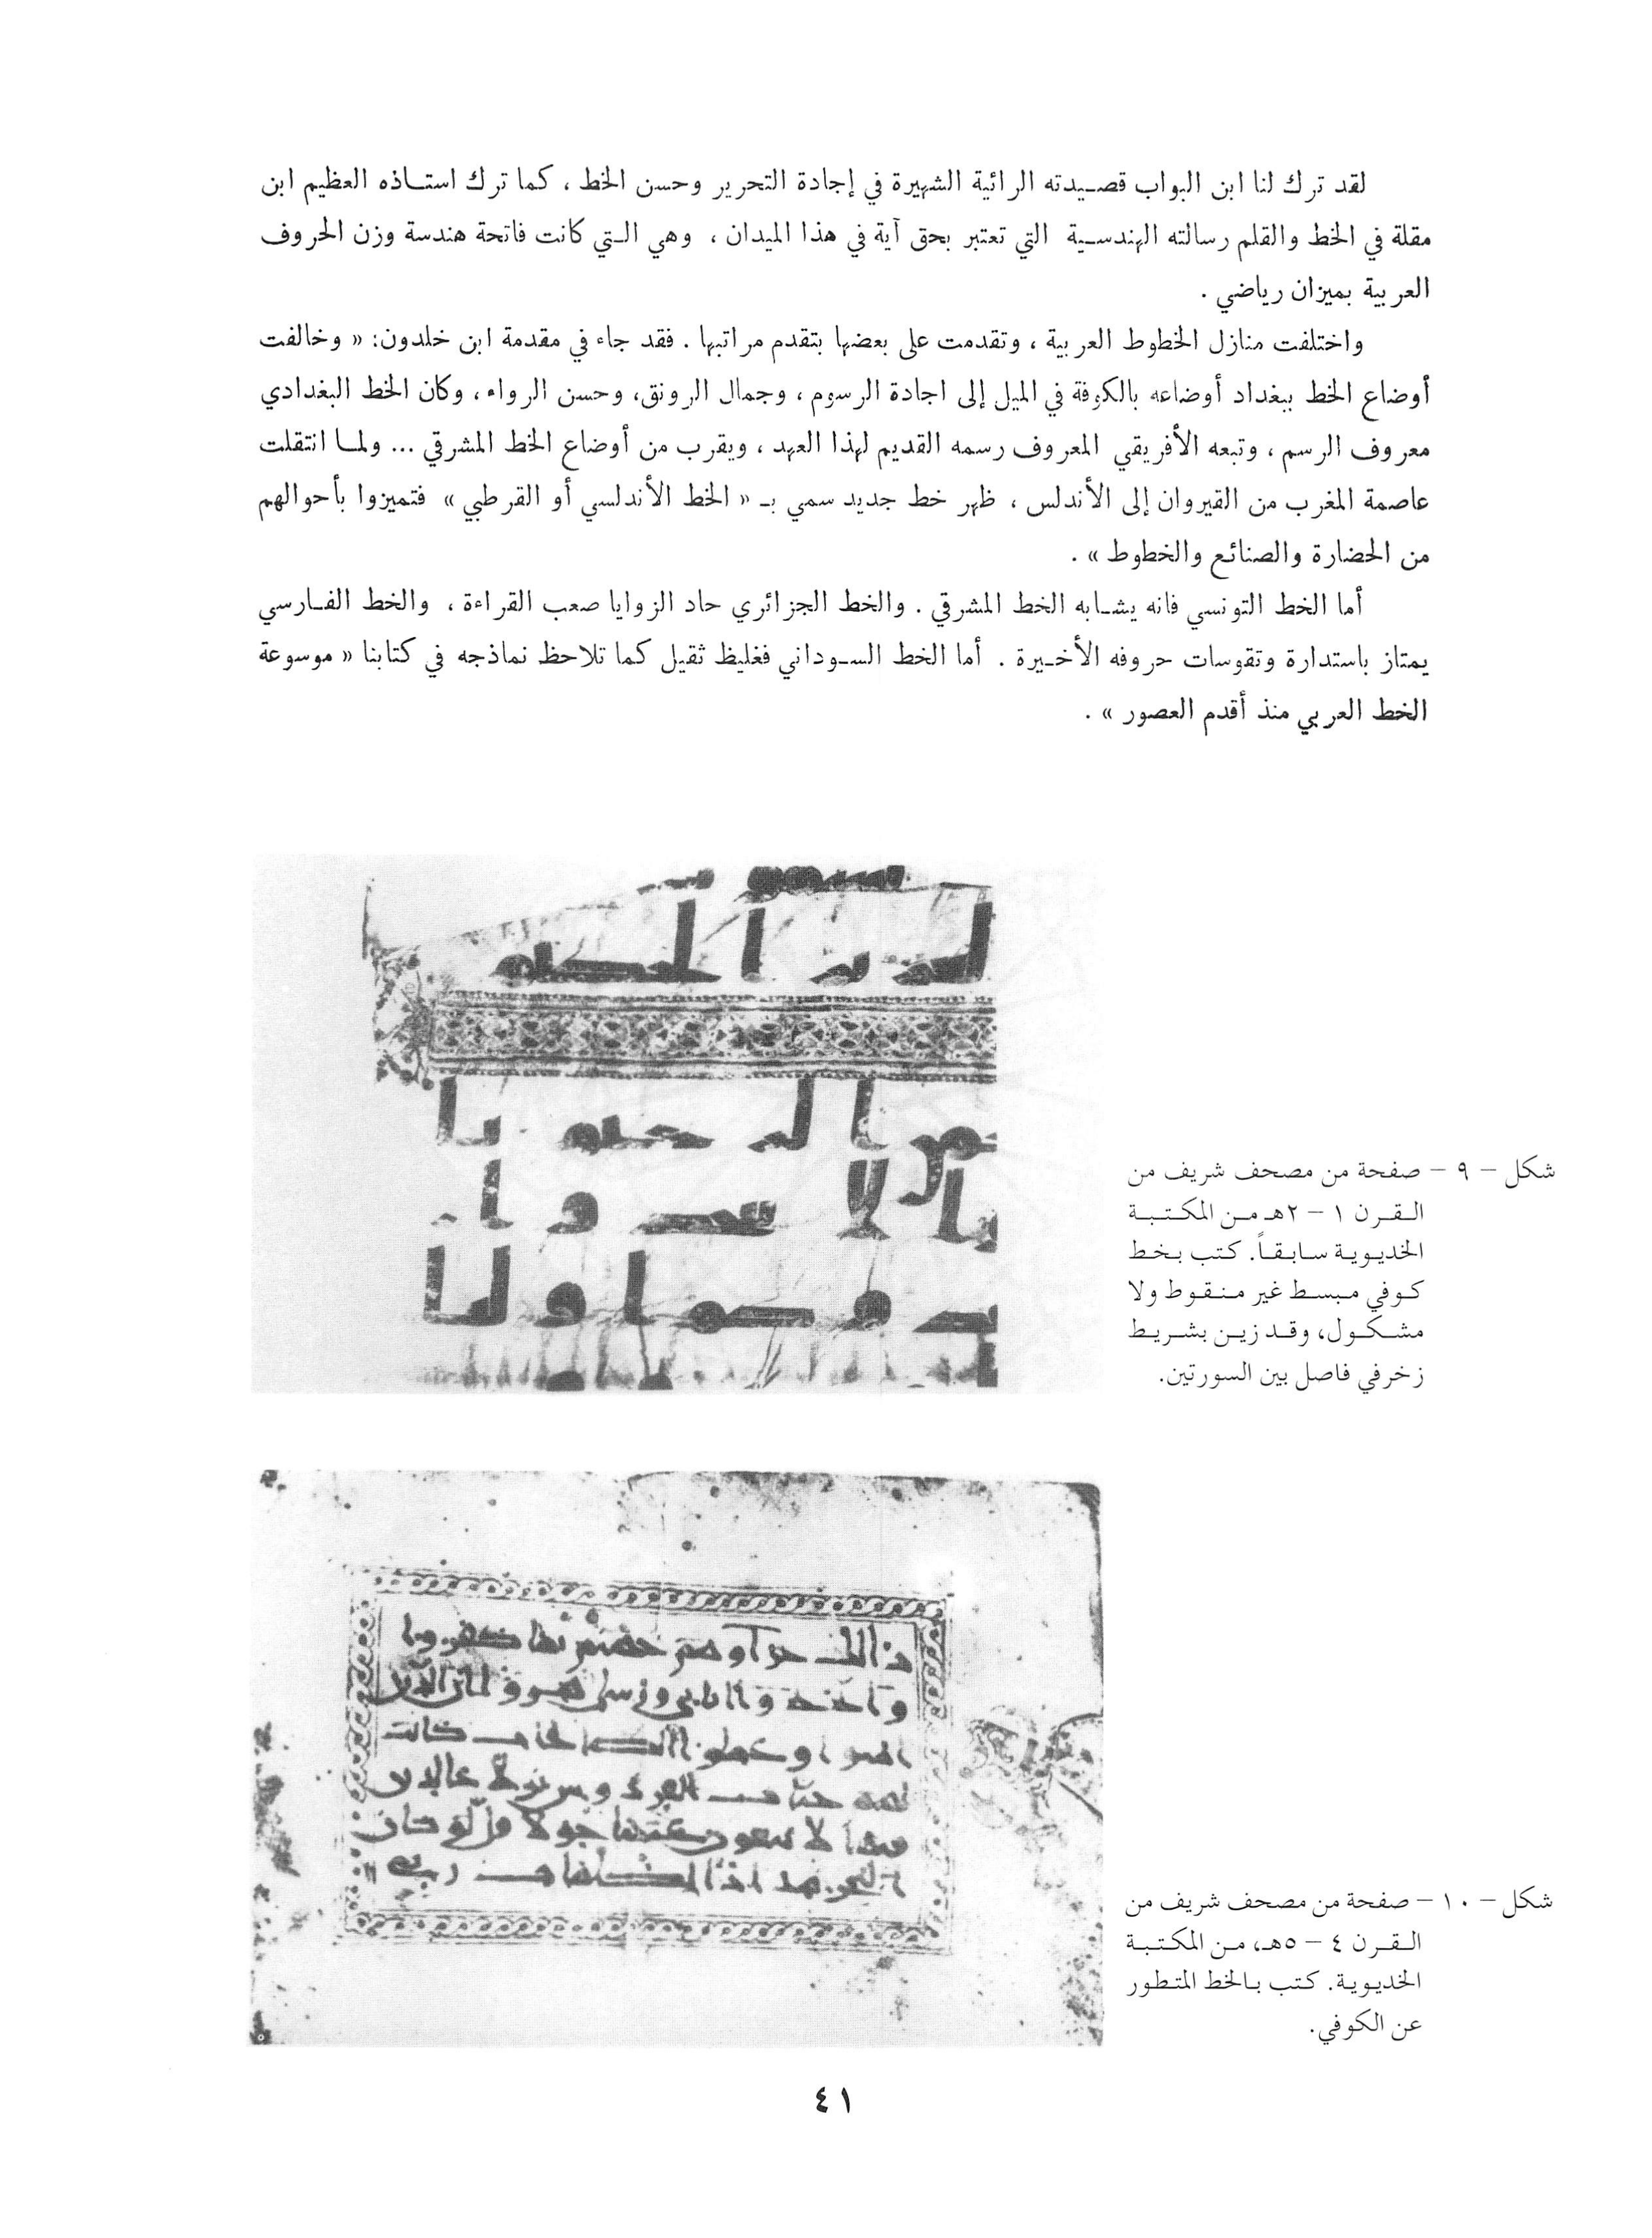 لقد ترك لنا ابن البواب قصيدته الرائية الشهيرة في إجادة التحرير وحسن الخط ، كما ترك استاذه العظيم ابن
مقلة في الخط والقلم رسالته الهندسية التي تعتبر بحق آية في هذا الميدان ، وهي التي كانت فاتحة هندسة وزن الحروف
العربية بميزان رياضي .
واختلفت منازل الخطوط العربية ، وتقدمت على بعضها بتقدم مراتبها . فقد جاء في مقدمة ابن خلدون: « وخالفت
أوضاع الخط ببغداد أوضاعه بالكوفة في الميل إلى اجادة الرسوم ، وجمال الرونق، وحسن الرواء ، وكان الخط البغدادي
معروف الرسم ، وتبعه الأفريقي المعروف رسمه القديم لهذا العهد ، ويقرب من أوضاع الخط المشرقي ... ولما انتقلت
عاصمة المغرب من القيروان إلى الأندلس ، ظهر خط جديد سمي بـ « الخط الأندلسي أو القرطبي » فتميزوا بأحوالهم
من الحضارة والصنائع والخطوط » .
أما الخط التونسي فانه يشابه الخط المشرقي . والخط الجزائري حاد الزوايا صعب القراءة ، والخط الفارسي
يمتاز باستدارة وتقوسات حروفه الأخيرة . أما الخط السوداني فغليظ ثقيل كما تلاحظ نماذجه في كتابنا « موسوعة
الخط العربي منذ أقدم العصور » .
شكل – ٩ – صفحة من مصحف شريف من
القرن ١ – ٢هـ من المكتبة
الخديوية سابقاً. كتب بخط
كوفي مبسط غير منقوط ولا
مشكول، وقد زين بشريط
زخرفي فاصل بين السورتين.
شكل – ١٠ – صفحة من مصحف شريف من
القرن ٤ – ٥هـ، من المكتبة
الخديوية. كتب بالخط المتطور
عن الكوفي.
٤١